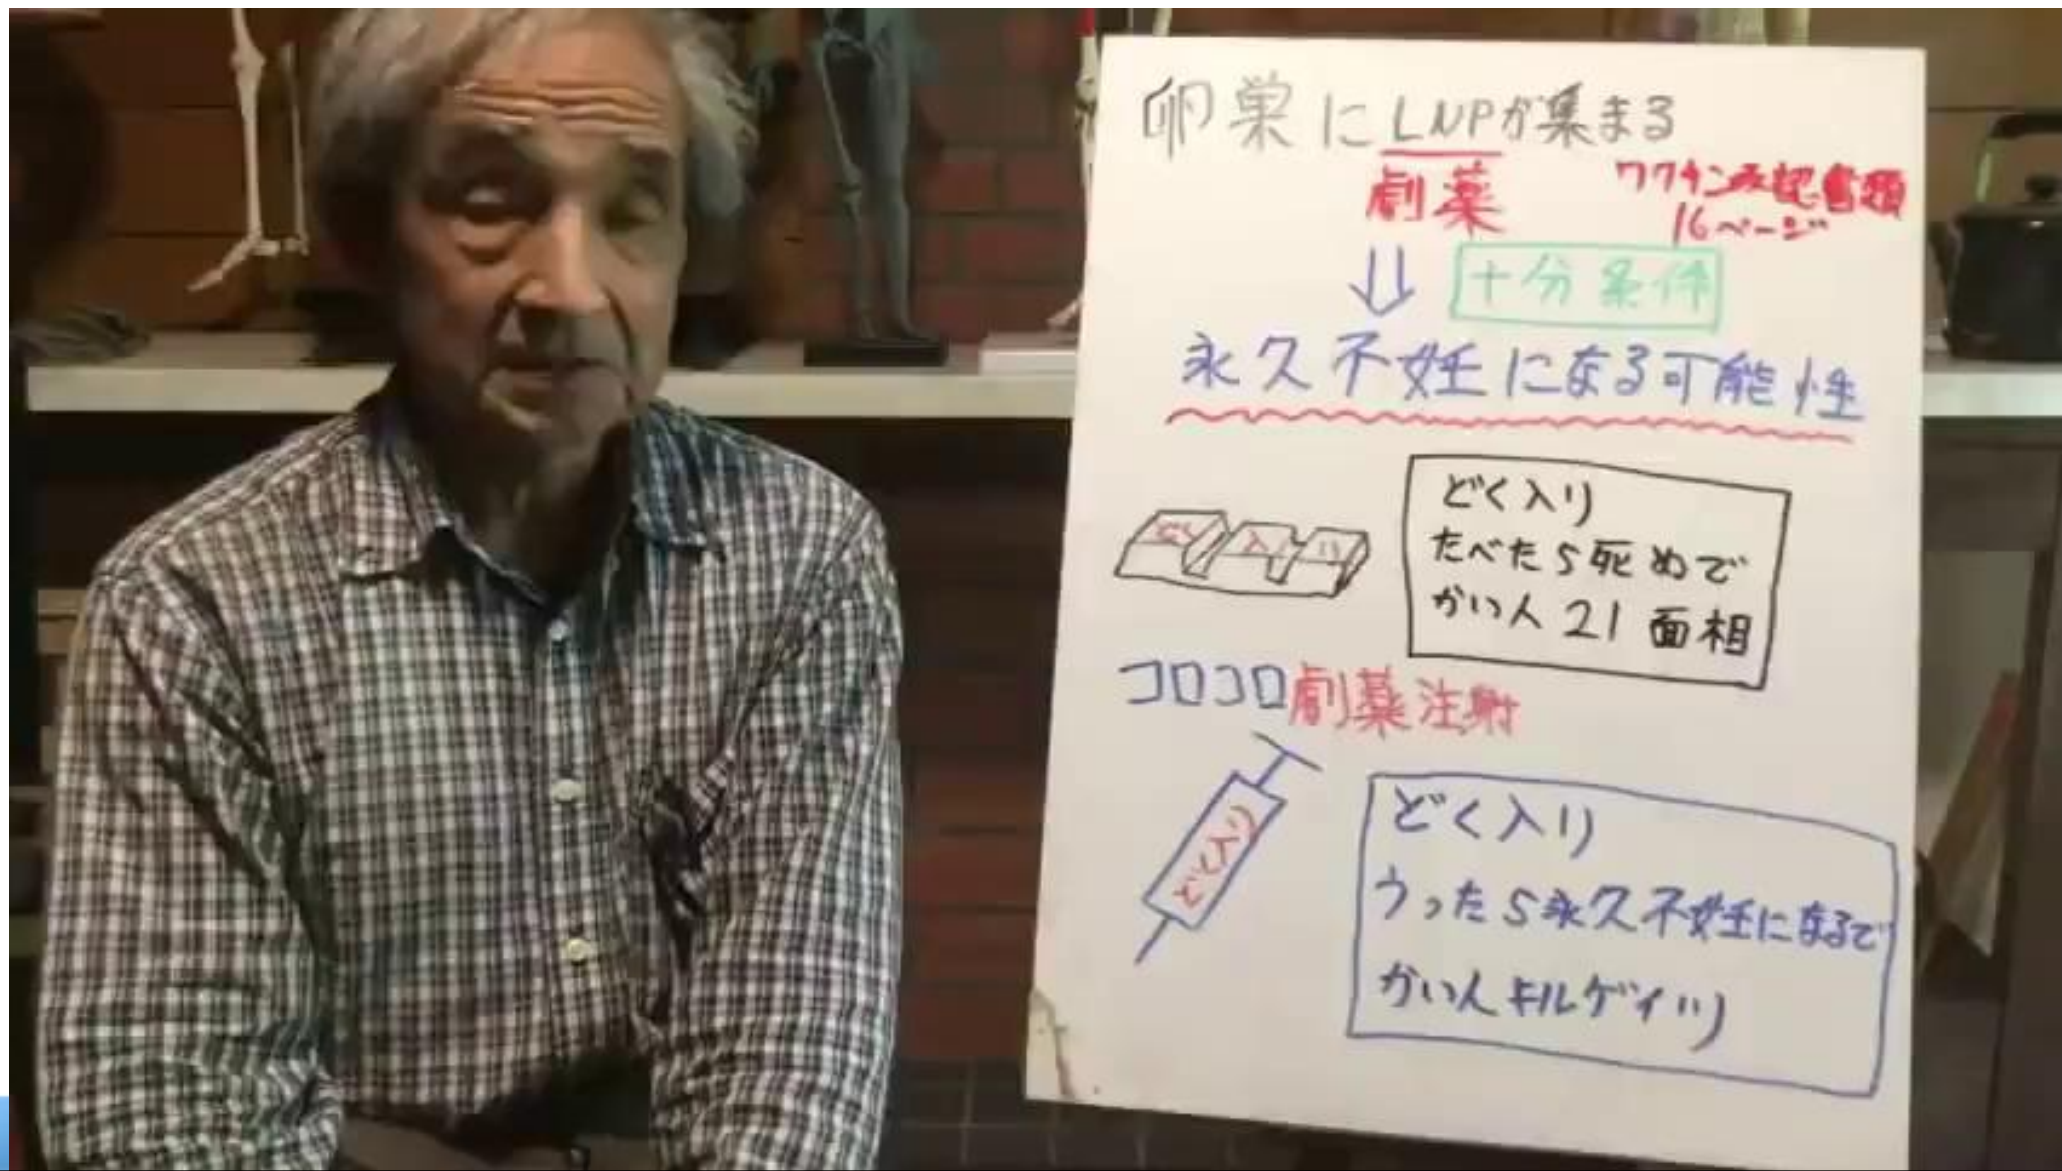 卵巣にLNPが集まる
劇薬
ワクチン承認書類
16ページ
十分条件
永久不妊になる可能性
どく入り
どく入り
たべたら死ぬで
かい人21面相
コロコロ劇薬注射
どく入り
どく入り
うったら永久不妊になるで
かい人キルゲイツ